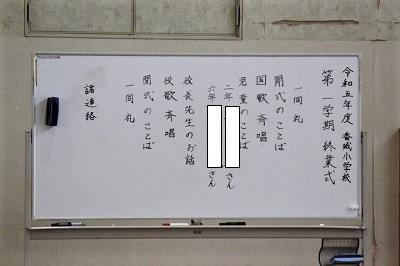 令和五年度 香城小学校
第一学期 終業式
一同 礼
開式のことば
国歌斉唱
児童のことば
二年 さん
六年 さん
校長先生のお話
校歌斉唱
閉式のことば
一同 礼
諸連絡